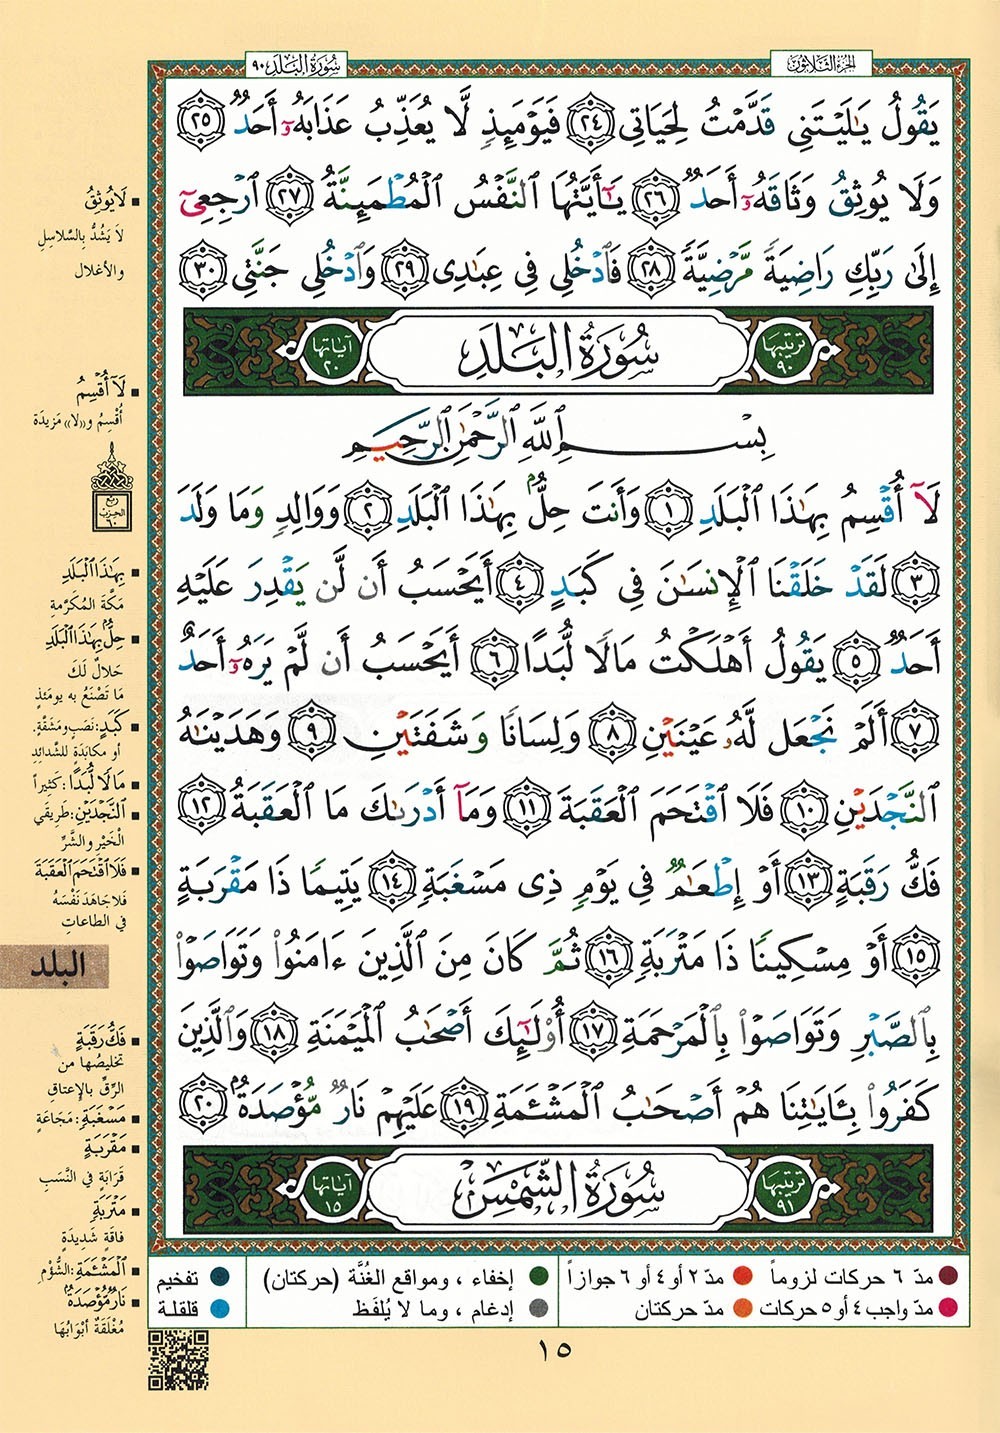 الجزء الثلاثون
سورة البلد ٩٠
يَقُولُ يَٰلَيۡتَنِي قَدَّمۡتُ لِحَيَاتِي ٢٤ فَيَوۡمَئِذٖ لَّا يُعَذِّبُ عَذَابَهُۥٓ أَحَدٞ ٢٥
وَلَا يُوثِقُ وَثَاقَهُۥٓ أَحَدٞ ٢٦ يَٰٓأَيَّتُهَا ٱلنَّفۡسُ ٱلۡمُطۡمَئِنَّةُ ٢٧ ٱرۡجِعِيٓ
إِلَىٰ رَبِّكِ رَاضِيَةٗ مَّرۡضِيَّةٗ ٢٨ فَٱدۡخُلِي فِي عِبَٰدِي ٢٩ وَٱدۡخُلِي جَنَّتِي ٣٠
ترتيبها ٩٠ سُورَةُ البَلَدِ آياتها ٢٠
بِسۡمِ ٱللَّهِ ٱلرَّحۡمَٰنِ ٱلرَّحِيمِ
لَآ أُقۡسِمُ بِهَٰذَا ٱلۡبَلَدِ ١ وَأَنتَ حِلُّۢ بِهَٰذَا ٱلۡبَلَدِ ٢ وَوَالِدٖ وَمَا وَلَدَ
٣ لَقَدۡ خَلَقۡنَا ٱلۡإِنسَٰنَ فِي كَبَدٍ ٤ أَيَحۡسَبُ أَن لَّن يَقۡدِرَ عَلَيۡهِ
أَحَدٞ ٥ يَقُولُ أَهۡلَكۡتُ مَالٗا لُّبَدًا ٦ أَيَحۡسَبُ أَن لَّمۡ يَرَهُۥٓ أَحَدٌ
٧ أَلَمۡ نَجۡعَل لَّهُۥ عَيۡنَيۡنِ ٨ وَلِسَانٗا وَشَفَتَيۡنِ ٩ وَهَدَيۡنَٰهُ
ٱلنَّجۡدَيۡنِ ١٠ فَلَا ٱقۡتَحَمَ ٱلۡعَقَبَةَ ١١ وَمَآ أَدۡرَىٰكَ مَا ٱلۡعَقَبَةُ ١٢
فَكُّ رَقَبَةٍ ١٣ أَوۡ إِطۡعَٰمٞ فِي يَوۡمٖ ذِي مَسۡغَبَةٖ ١٤ يَتِيمٗا ذَا مَقۡرَبَةٍ
١٥ أَوۡ مِسۡكِينٗا ذَا مَتۡرَبَةٖ ١٦ ثُمَّ كَانَ مِنَ ٱلَّذِينَ ءَامَنُواْ وَتَوَاصَوۡاْ
بِٱلصَّبۡرِ وَتَوَاصَوۡاْ بِٱلۡمَرۡحَمَةِ ١٧ أُوْلَٰٓئِكَ أَصۡحَٰبُ ٱلۡمَيۡمَنَةِ ١٨ وَٱلَّذِينَ
كَفَرُواْ بِـَٔايَٰتِنَا هُمۡ أَصۡحَٰبُ ٱلۡمَشۡـَٔمَةِ ١٩ عَلَيۡهِمۡ نَارٞ مُّؤۡصَدَةُۢ ٢٠
ترتيبها ٩١ سُورَةُ الشَّمْسِ آياتها ١٥
لَا يُوثِقُ
لَا يَشُدُّ بِالسَّلاسِلِ
والأغلال
لَآ أُقْسِمُ
أُقْسِمُ و«لا» مَزِيدَة
ربع الحزب ٦٠
بِهَٰذَا ٱلْبَلَدِ
مَكَّةَ المُكَرَّمةِ
حِلُّۢ بِهَٰذَا ٱلْبَلَدِ
حَلالٌ لَكَ
مَا تَصْنَعُ به يومَئذٍ
كَبَدٍ: نَصَبٍ ومَشَقَّةٍ.
أو مكابَدَةٍ للشَّدائِدِ
مَالًا لُّبَدًا: كَثِيراً
ٱلنَّجْدَيْنِ: طَرِيقَيِ
الْخَيْرِ والشَّرِّ
فَلَا ٱقْتَحَمَ ٱلْعَقَبَةَ
فَلا جَاهَدَ نَفْسَهُ
في الطاعاتِ
البلد
فَكُّ رَقَبَةٍ
تخليصُها من
الرِّقِّ بالإعتاقِ
مَسْغَبَةٍ: مَجَاعَةٍ
مَقْرَبَةٍ
قَرَابَةٍ في النَّسَبِ
مَتْرَبَةٍ
فاقَةٍ شَدِيدَةٍ
ٱلْمَشْـَٔمَةِ: الشُّؤْمِ
نَارٌ مُّؤْصَدَةٌ
مُغْلَقَةٌ أبْوَابُهَا
مدّ ٦ حركات لزوماً مدّ ٢ أو ٤ أو ٦ جوازاً إخفاء ، ومواقع الغُنَّة (حركتان) تفخيم
مدّ واجب ٤ أو ٥ حركات مدّ حركتان إدغام ، وما لا يُلفَظ قلقلة
١٥